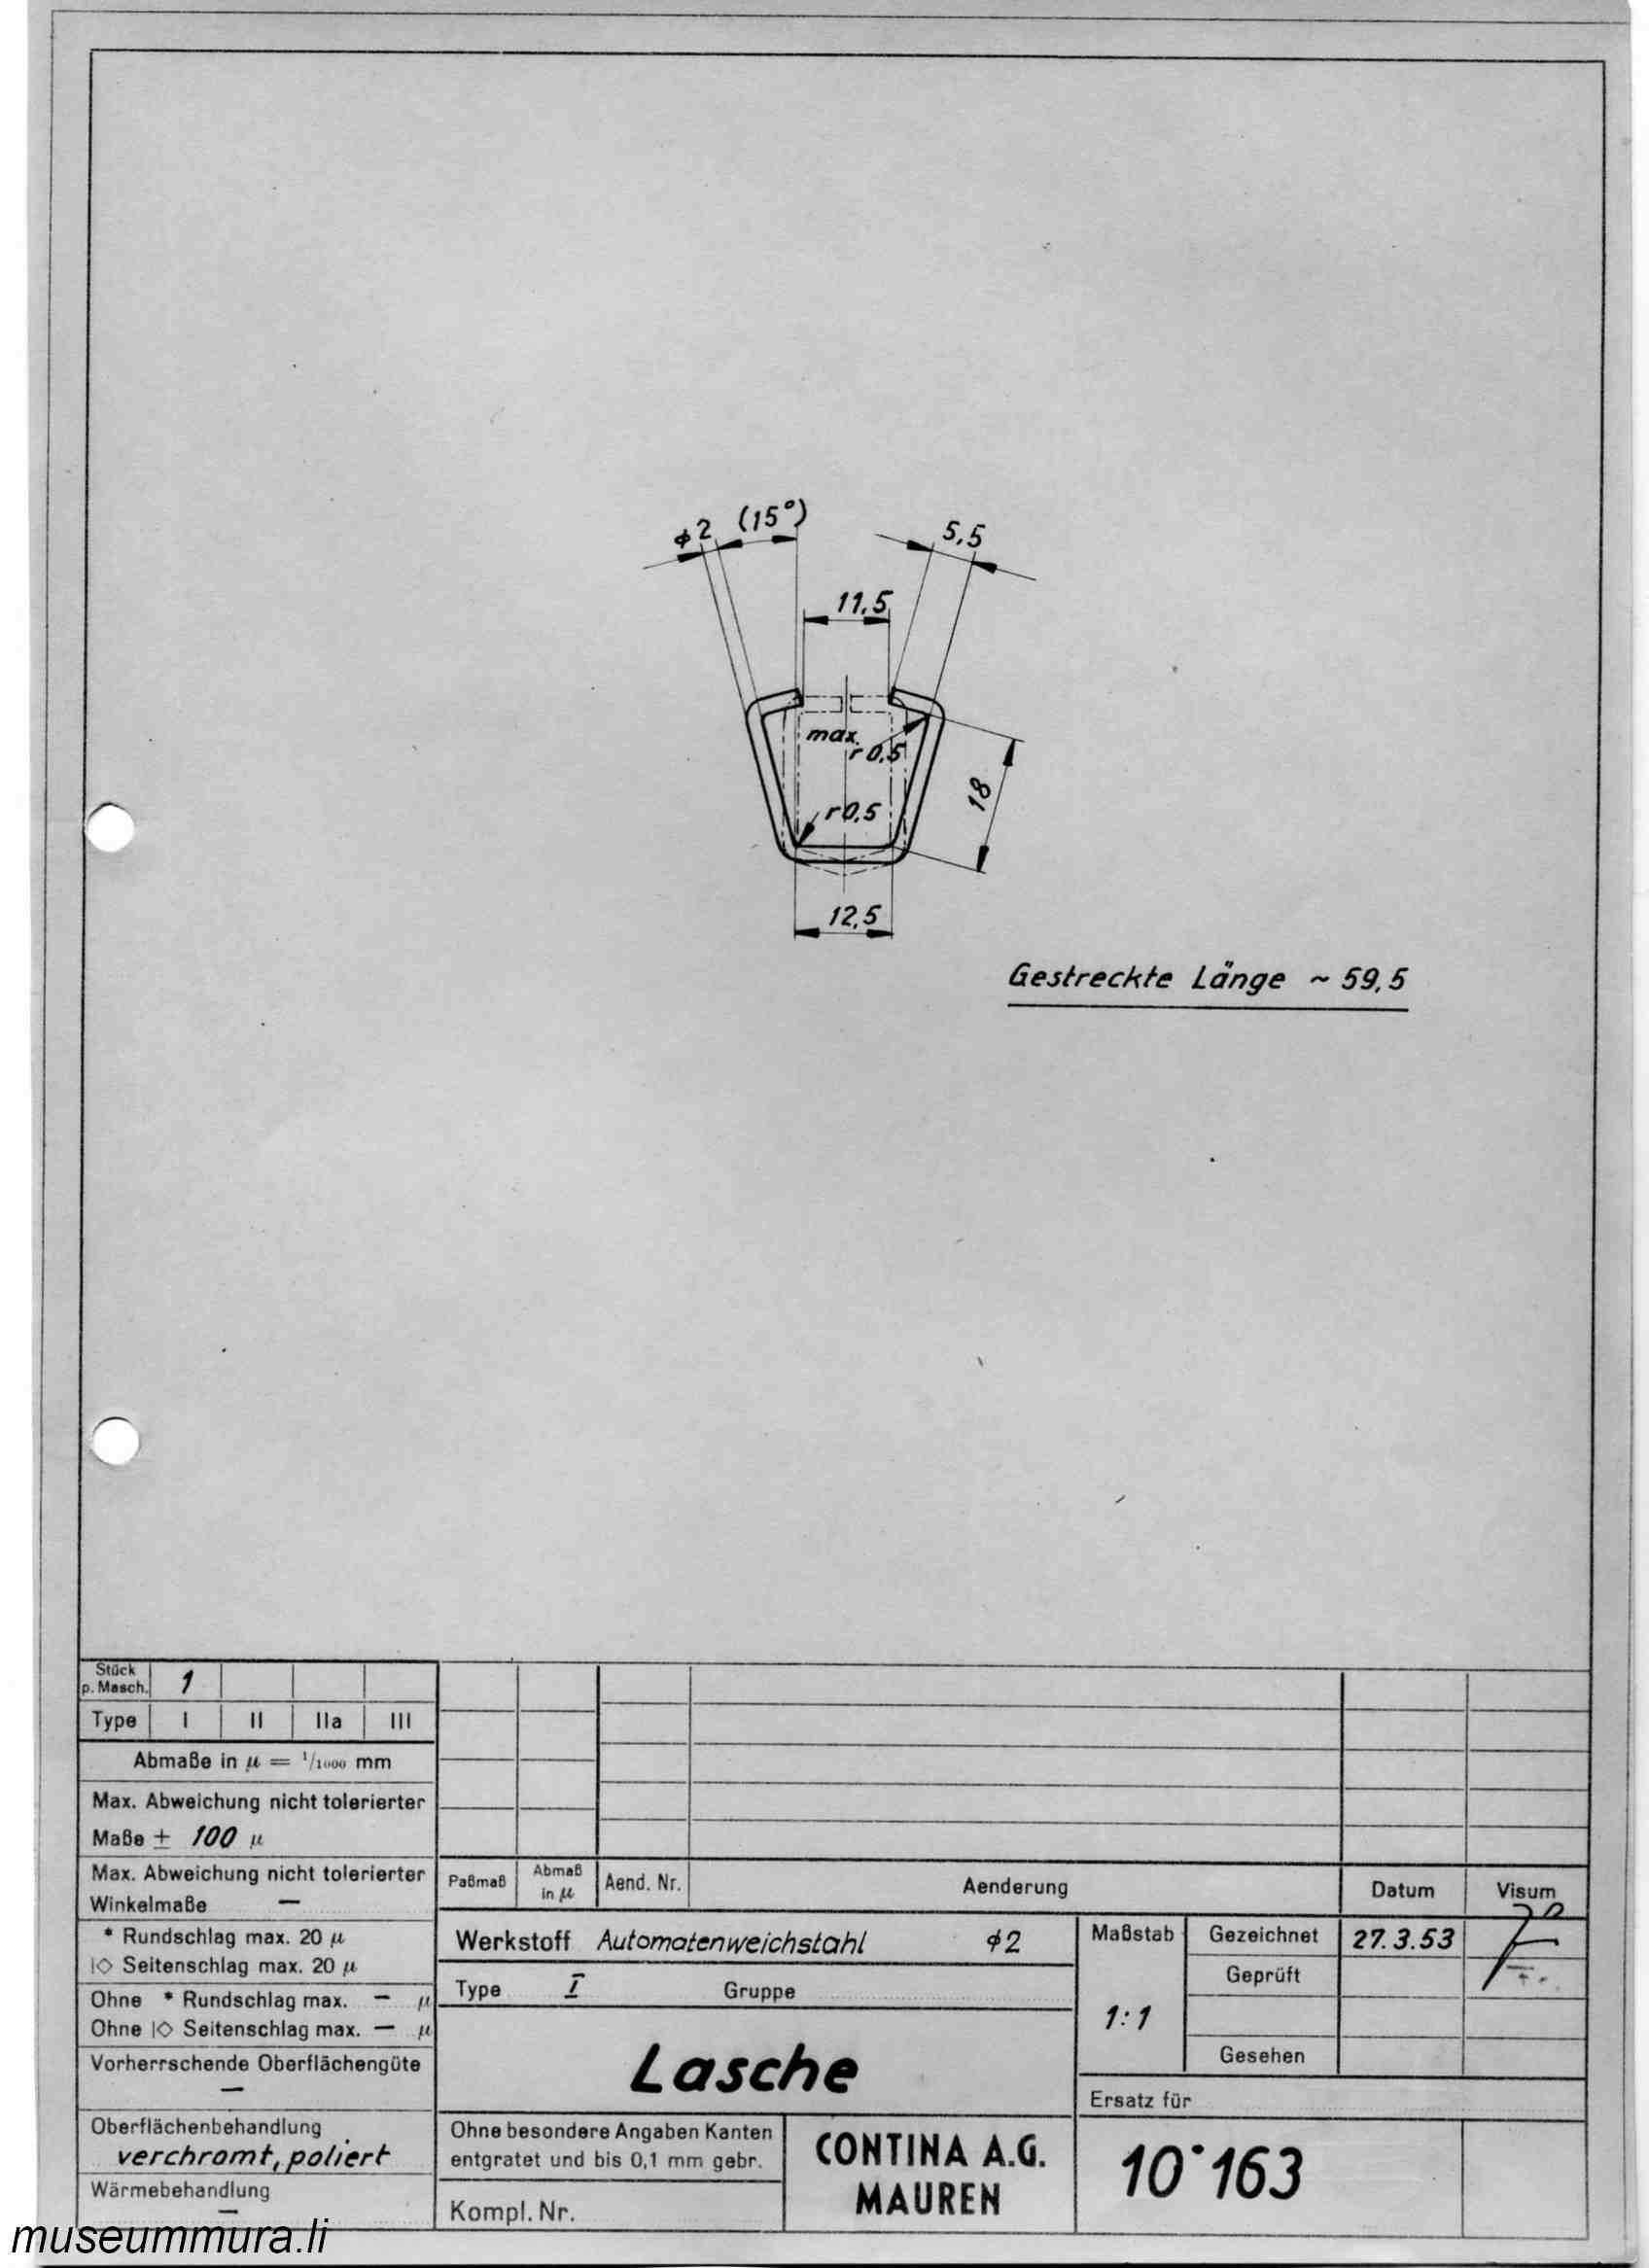 ⌀2 (15°) 5,5
11,5
max.
r 0,5
r 0,5
18
12,5
Gestreckte Länge ~ 59,5
Stück
p. Masch. 1
Type I II IIa III
Abmaße in µ = 1/1000 mm
Max. Abweichung nicht tolerierter
Maße ± 100 µ
Max. Abweichung nicht tolerierter
Winkelmaße —
* Rundschlag max. 20 µ
|◇ Seitenschlag max. 20 µ
Ohne * Rundschlag max. — µ
Ohne |◇ Seitenschlag max. — µ
Vorherrschende Oberflächengüte
—
Oberflächenbehandlung
verchromt, poliert
Wärmebehandlung
—
Paßmaß Abmaß in µ Aend. Nr. Aenderung Datum Visum
Werkstoff Automatenweichstahl ⌀2
Type I Gruppe
Lasche
Ohne besondere Angaben Kanten
entgratet und bis 0,1 mm gebr.
Kompl. Nr.
CONTINA A.G.
MAUREN
Maßstab
1:1
Gezeichnet 27.3.53
Geprüft
Gesehen
Ersatz für
10·163
museummura.li